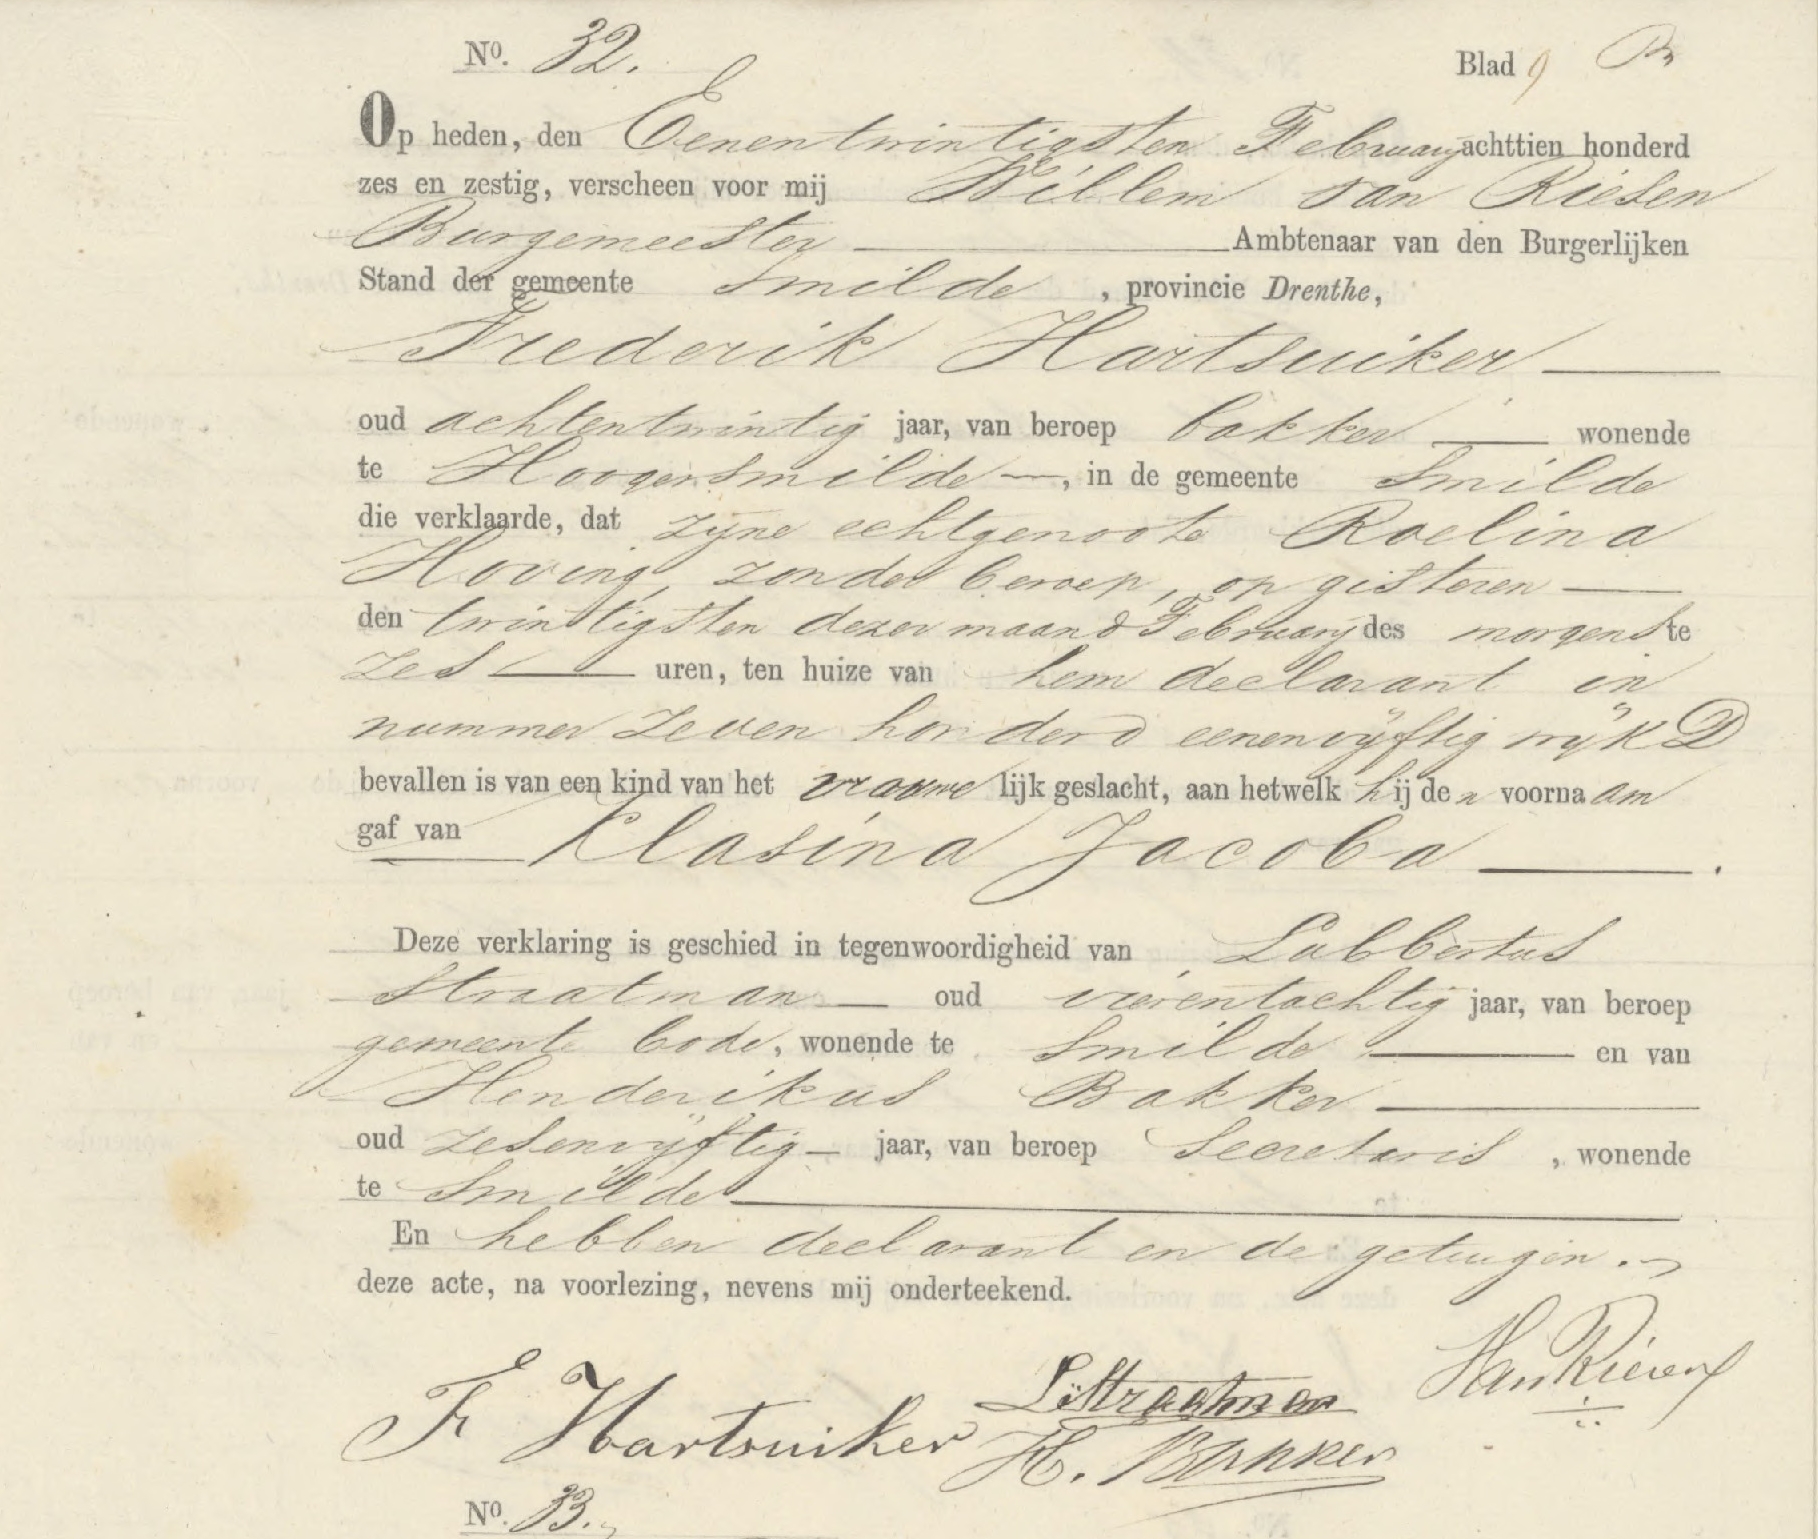 No. 32.
Blad 9
Op heden, den Eenentwintigsten February achttien honderd
zes en zestig, verscheen voor mij Willem van Riesen
Burgemeester Ambtenaar van den Burgerlijken
Stand der gemeente Smilde, provincie Drenthe,
Frederik Hartsuiker
oud achtentwintig jaar, van beroep bakker wonende
te Hoogersmilde, in de gemeente Smilde
die verklaarde, dat zyne echtgenoote Roelina
Hoving, zonder beroep, op gisteren
den twintigsten dezer maand February des morgens te
zes uren, ten huize van hem declarant in
nummer zeven honderd eenenvyftig wyk D
bevallen is van een kind van het vrouwelijk geslacht, aan hetwelk hij den voornaam
gaf van Klasina Jacoba.
Deze verklaring is geschied in tegenwoordigheid van Lubbertus
Straatman oud vierentachtig jaar, van beroep
gemeente bode, wonende te Smilde en van
Henderikus Bakker
oud zesenvyftig jaar, van beroep Secretaris, wonende
te Smilde
En hebben declarant en de getuigen
deze acte, na voorlezing, nevens mij onderteekend.
F Hartsuiker L Straatman WvanRiesen
H. Bakker
No. 33.